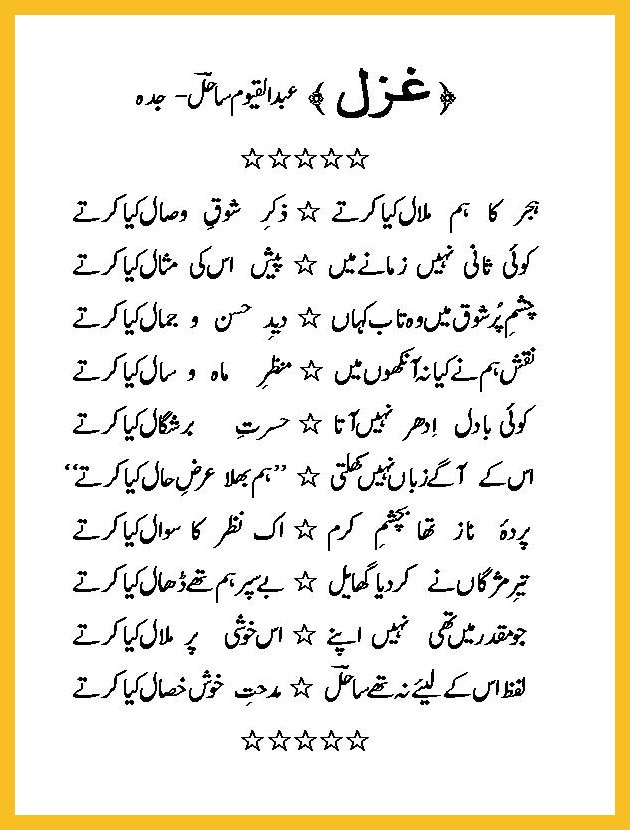 ﴿ غزل ﴾ عبدالقیوم ساحلؔ - جدہ
☆☆☆☆☆
ہجر کا ہم ملال کیا کرتے ☆ ذکرِ شوقِ وصال کیا کرتے
کوئی ثانی نہیں زمانے میں ☆ پیش اس کی مثال کیا کرتے
چشمِ پُر شوق میں وہ تاب کہاں ☆ دیدِ حسن و جمال کیا کرتے
نقش ہم نے کیا نہ آنکھوں میں ☆ منظرِ ماہ و سال کیا کرتے
کوئی بادل اِدھر نہیں آتا ☆ حسرتِ برشگال کیا کرتے
اس کے آگے زباں نہیں کھلتی ☆ ’’ہم بھلا عرضِ حال کیا کرتے‘‘
پردۂ ناز تھا بچشمِ کرم ☆ اک نظر کا سوال کیا کرتے
تیرِ مژگاں نے کر دیا گھایل ☆ بے سپر ہم تھے ڈھال کیا کرتے
جو مقدر میں تھی نہیں اپنے ☆ اس خوشی پر ملال کیا کرتے
لفظ اس کے لیئے نہ تھے ساحلؔ ☆ مدحتِ خوش خصال کیا کرتے
☆☆☆☆☆